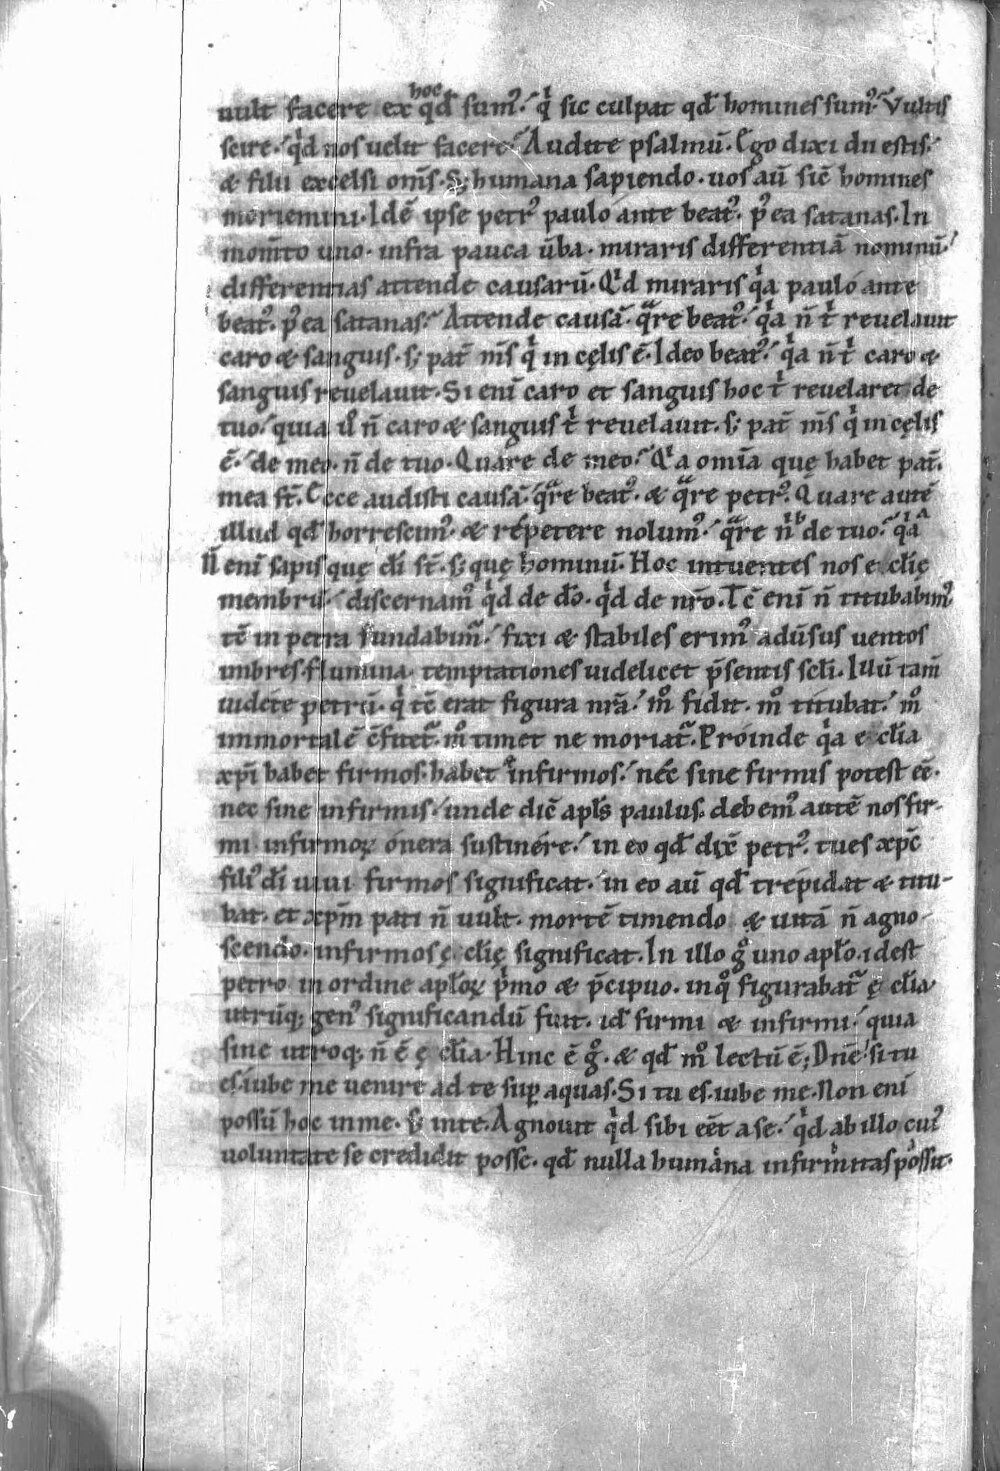 uult facere ex hoc qđ sumꝰ. qͥ sic culpat qđ homines sumꝰ. Vultis
scire. qͥd nos uelit facere. Audite psalmū. Ego dixi dii estis.
& filii excelsi om̄s. S; humana sapiendo. uos aū sic̄ homines
moriemini. Idē ipse petrꝰ paulo ante beatꝰ. p̄ ea satanas. In
mom̄to uno. infra pauca ūba. miraris differentiā nominū.
differentias attende causarū. Qͥd miraris qͥa paulo ante
beatꝰ. p̄ ea satanas. Attende causā. qᵃre beatꝰ. qͥa ñ tͥ reuelauit
caro & sanguis. s; pat̄ m̄s qͥ in cęlis ē. Ideo beatꝰ. qͥa ñ tͥ caro &
sanguis reuelauit. Si enī caro et sanguis hoc tͥ reuelaret de
tuo. quia ūo ñ caro & sanguis tͥ reuelauit. s; pat̄ m̄s qͥ in cęlis
ē. de meo. ñ de tuo. Quare de meo. Qͥa omīa quę habet pat̄.
mea st̄. Ecce audisti causā. qᵃre beatꝰ. & qᵃre petrꝰ. Quare autē
illud qđ horrescimꝰ. & repetere nolumꝰ. qᵃre ñ de tuo. qͥa
N̄ enī sapis quę đi st̄. s; quę hominū. Hoc intuentes nos ecclię
membris. discernamꝰ qͥd de đo. qͥd de nr̄o. Tc̄ enī ñ titubabimꝰ.
tc̄ in petra fundabimͬ. fixi & stabiles erimꝰ aduēsus uentos
imbres. flumina. temptationes uidelicet p̄sentis scl̄i. Illū tam̄
uidete petrū. qͥ tc̄ erat figura nr̄a. mͦ fidit. mͦ titubat. mͦ
immortalē c̄fitetͬ. mͦ timet ne moriatͬ. Proinde qͥa ecclīa
xp̄i habet firmos. habet & infirmos. nec sine firmis potest eē.
nec sine infirmis. unde dic̄ apl̄s paulus. debemꝰ autē nos fir-
mi infirmoꝝ onera sustinere. in eo qđ dix̄ petrꝰ. tu es xp̄c
filiꝰ đi uiui firmos significat. in eo aū qđ trepidat & titu-
bat. et xp̄m pati ñ uult. mortē timendo & uitā ñ agno-
scendo. infirmos ęcclię significat. In illo gͦ uno apl̄o. idest
petro in ordine apl̄oꝝ pͥmo & p̄cipuo. in qͦ figurabatͬ ęcclīa.
utrūq; genꝰ significandū fuit. id̄ firmi & infirmi. quia
sine utroq; ñ ē ęcclīa. Hinc ē gͦ. & qđ mͦ lectū ē; Dn̄e. si tu
es. iube me uenire ad te suꝑ aquas. Si tu es. iube me. Non enī
possū hoc in me. s; in te. Agnouit qͥd sibi eēt a se. qͥd ab illo cuiꝰ
uoluntate se credidit posse. qđ nulla humana infirmitas possit.